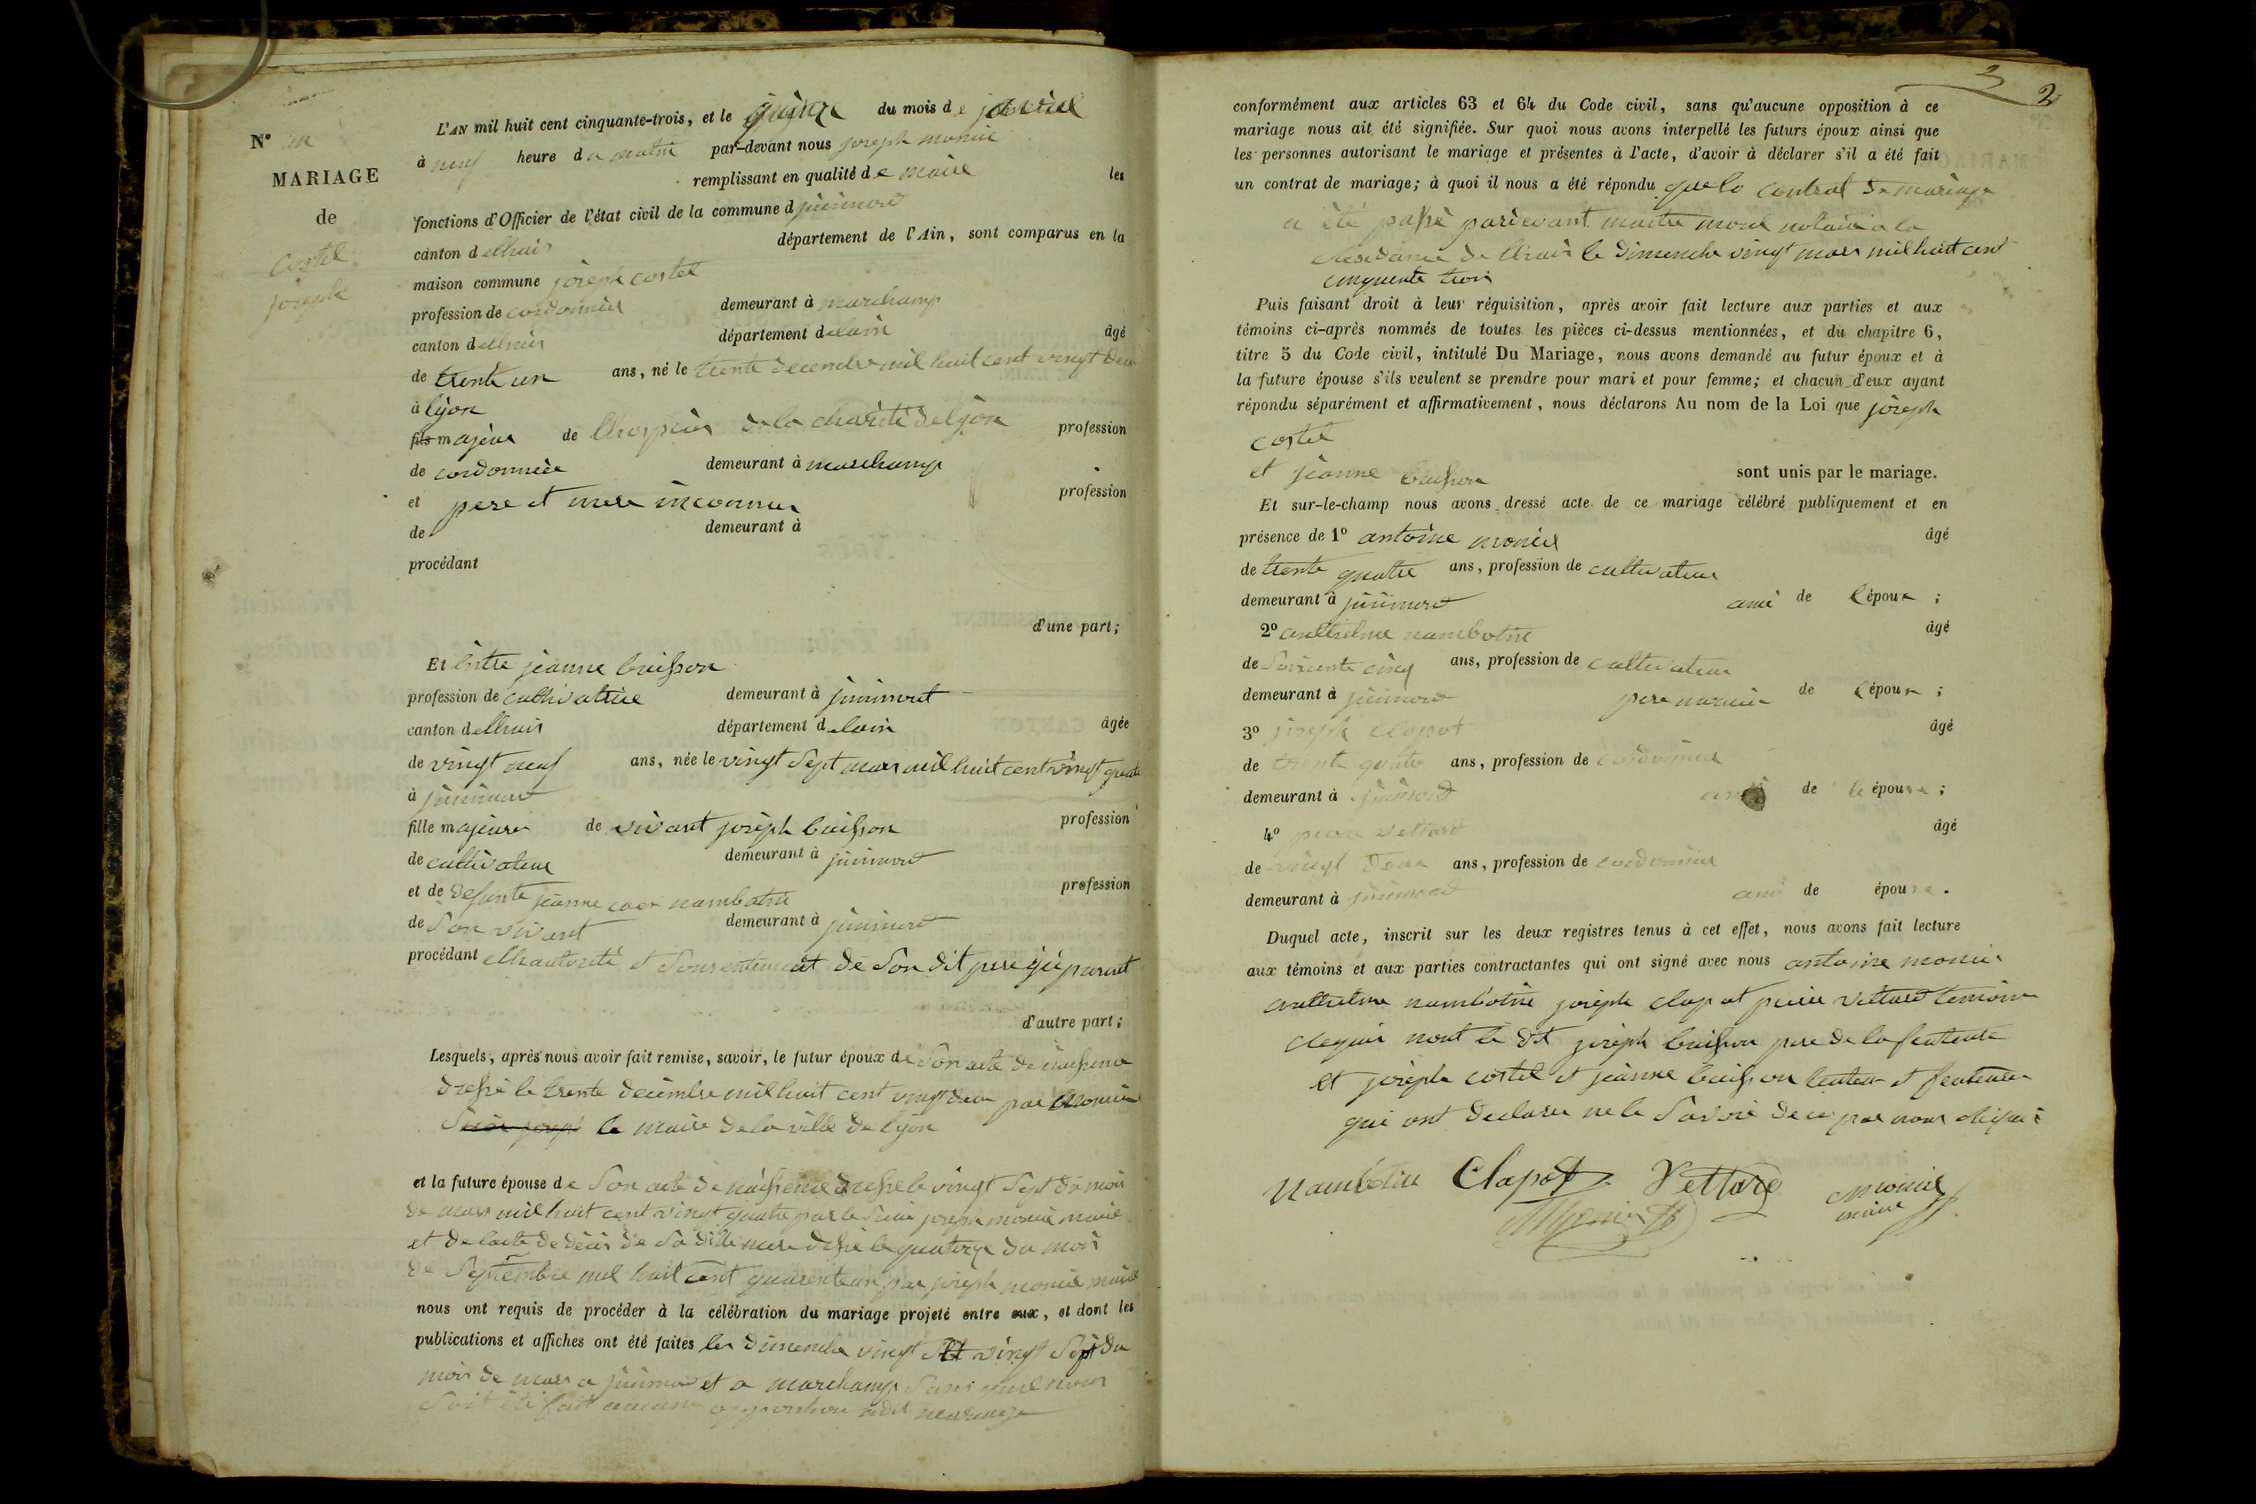 N° un
MARIAGE
de
Costel
joseph
L'AN mil huit cent cinquante-trois, et le quinze du mois de
à neuf heure du matin par-devant nous joseph monier
remplissant en qualité de maire les
fonctions d'Officier de l'état civil de la commune d jujurieux
canton delhuis département de l'Ain, sont comparus en la
maison commune joseph costel
profession de cordonnier demeurant à marchamp
canton delhuis département delain âgé
de trente un ans, né le trente decembre mil huit cent vingt deux
à lyon
fils majeur de lhospice de la charité de lyon profession
de cordonnier demeurant à marchamp
et pere et mere inconnu profession
de demeurant à
procédant
d'une part;
Et jeanne buisson
profession de cultivatrice demeurant à
canton delhuis département delain âgée
de vingt neuf ans, née le vingt sept mars mil huit cent vingt quatre
à
fille majeure de vivant joseph buisson profession
de cultivateur demeurant à
et de defunte jeanne nambotin profession
de son vivant demeurant à
procédant et consentement de son dit pere
d'autre part;
Lesquels, après nous avoir fait remise, savoir, le futur époux de son acte de naissence
dressé le trente decembre mil huit cent vingt deux par
le maire de la ville de lyon
et la future épouse de son acte de naissence dressé le vingt sept du mois
de mars mil huit cent vingt quatre par le joseph monier maire
et de lacte de décès de sa dite mere le quatorze du mois
de septembre mil huit cent quarente un par joseph monier maire
nous ont requis de procéder à la célébration du mariage projeté entre eux, et dont les
publications et affiches ont été faites les dimenche vingt et vingt sept du
mois de mars a et a marchamp
fait aucune opposition mariage
2
conformément aux articles 63 et 64 du Code civil, sans qu'aucune opposition à ce
mariage nous ait été signifiée. Sur quoi nous avons interpellé les futurs époux ainsi que
les personnes autorisant le mariage et présentes à l'acte, d'avoir à déclarer s'il a été fait
un contrat de mariage; à quoi il nous a été répondu que le contrat de mariage
a été passé pardevant maitre notaire a la
de lhuis le dimenche vingt mars mil huit cent
cinquente trois
Puis faisant droit à leur réquisition, après avoir fait lecture aux parties et aux
témoins ci-après nommés de toutes les pièces ci-dessus mentionnées, et du chapitre 6,
titre 5 du Code civil, intitulé Du Mariage, nous avons demandé au futur époux et à
la future épouse s'ils veulent se prendre pour mari et pour femme; et chacun d'eux ayant
répondu séparément et affirmativement, nous déclarons Au nom de la Loi que joseph
costel
et jeanne buisson sont unis par le mariage.
Et sur-le-champ nous avons dressé acte de ce mariage célébré publiquement et en
présence de 1° antoine monier âgé
de trente quatre ans, profession de cultivateur
demeurant à ami de l'époux ;
2° anthelme nambotin âgé
de soixente cinq ans, profession de cultivateur
demeurant à de l'épouse ;
3° joseph clapot âgé
de trente quatre ans, profession de cordonnier
demeurant à ami de le épouse ;
4° pierre vettard âgé
de vingt deux ans, profession de cordonnier
demeurant à ami de épouse .
Duquel acte, inscrit sur les deux registres tenus à cet effet, nous avons fait lecture
aux témoins et aux parties contractantes qui ont signé avec nous antoine monier
anthelme nambotin joseph clapot pierre vettard temoins
joseph buisson pere de la
et joseph costel et jeanne buisson
qui ont declarer ne le savoir de ce par nous
Nambotin Clapot Vettard Monier
maire
Monier